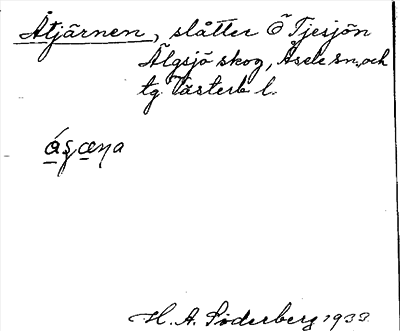 Åtjärnen, slåtter Ö Tjesjön
Älgsjö skog, Åsele sn. och
tg. Västerb l.
H. A. Söderberg 1933